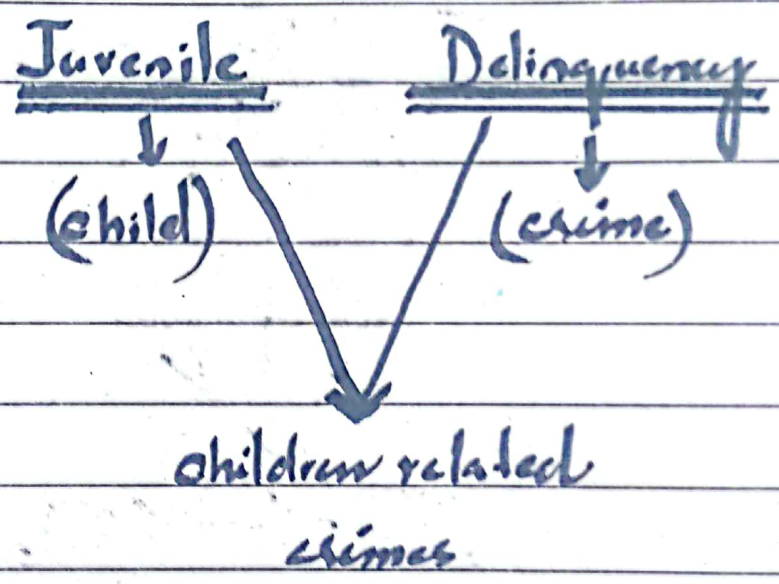 Juvenile Delinquency
(child) (crime)
children related
crimes